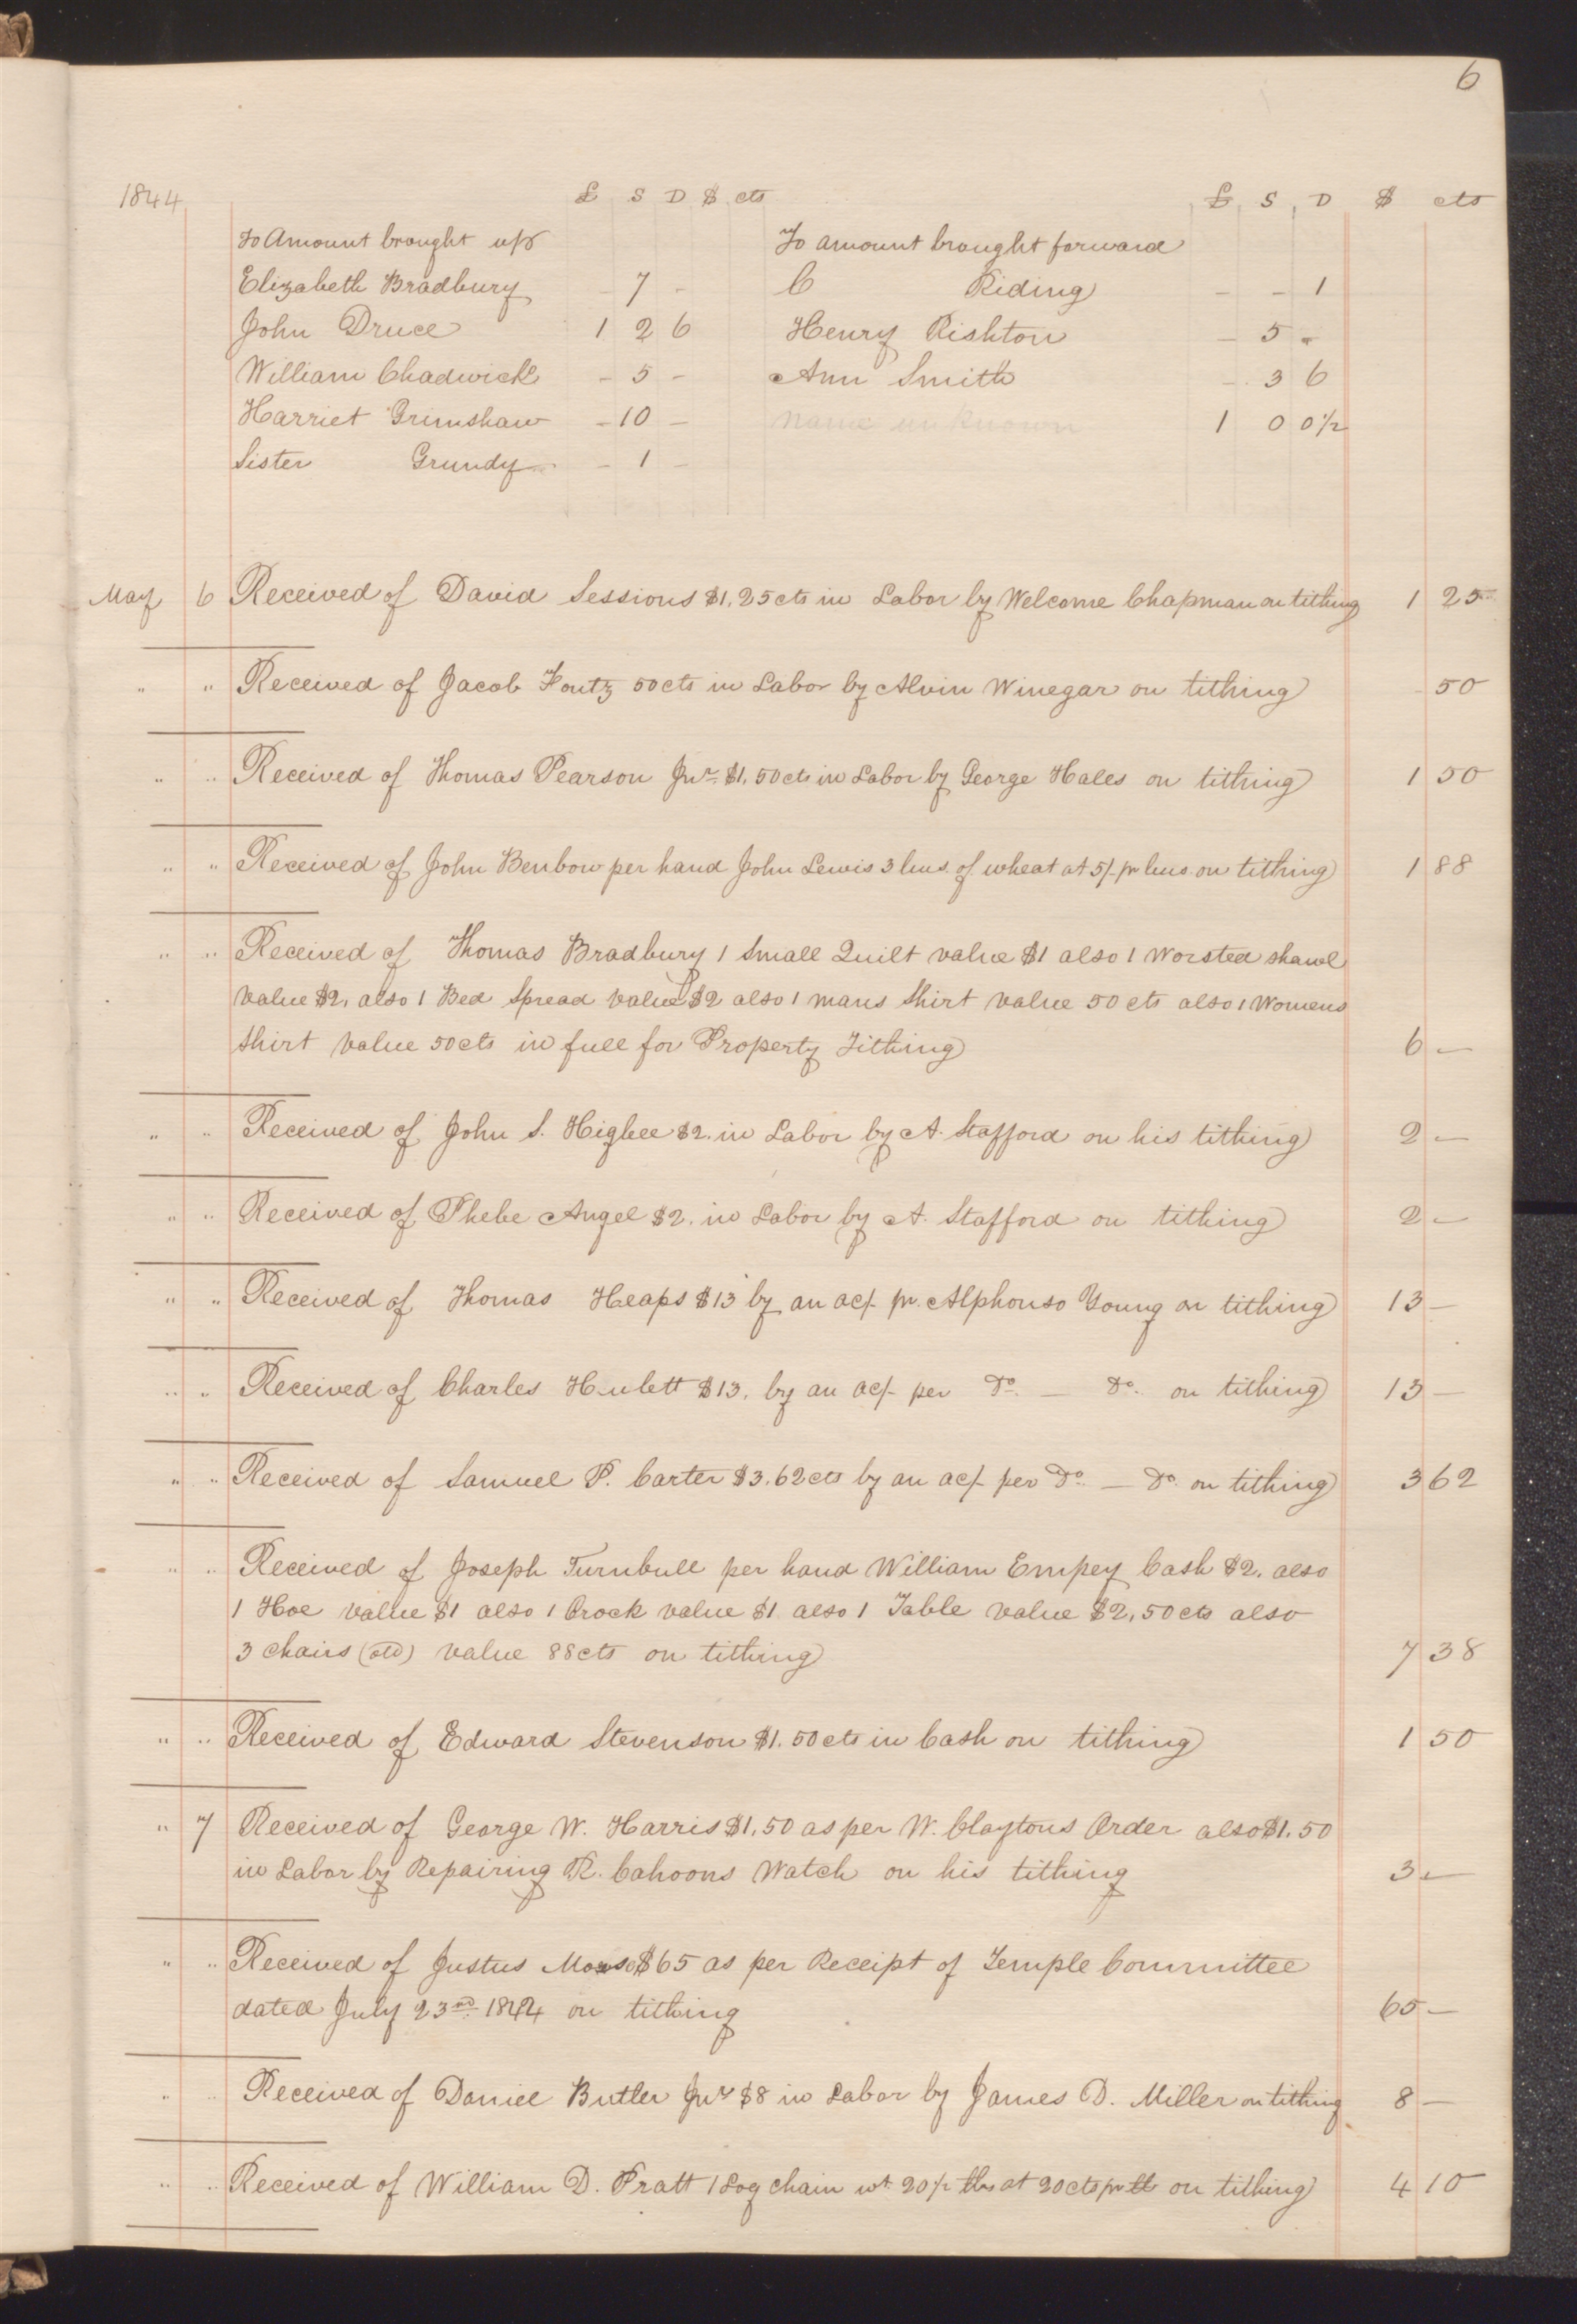 6
1844 £ S D $ cts £ S D $ cts
To Amount brought up To amount brought forward
Elizabeth Bradbury - 7 - C Riding - - 1
John Druce 1 2 6 Henry Rishton - 5 -
William Chadwick - 5 - Ann Smith - 3 6
Harriet Grimshaw - 10 - name unknown 1 0 0½
Sister Grundy - 1 -
May 6 Received of David Sessions $1,25cts in Labor by Welcome Chapman on tithing 1 25
" " Received of Jacob Foutz 50cts in Labor by Alvin Winegar on tithing - 50
" " Received of Thomas Pearson Junr $1,50cts in Labor by George Hales on tithing 1 50
" " Received of John Benbow per hand John Lewis 3 bus. of wheat at 5/- pr bus. on tithing 1 88
" " Received of Thomas Bradbury 1 Small Quilt value $1 also 1 Worsted shawl
value $2, also 1 Bed Spread value $2 also 1 mans Shirt value 50 cts also 1 Womens
Shirt value 50cts in full for Property Tithing 6 —
" " Received of John S. Higbee $2. in Labor by A. Stafford on his tithing 2 —
" " Received of Phebe Angel $2. in Labor by A. Stafford on tithing 2 —
" " Received of Thomas Heaps $13 by an ac/- pr. Alphonso Young on tithing 13 —
" " Received of Charles Hulett $13. by an ac/- per Do. — Do. on tithing 13 —
" " Received of Samuel P. Carter $3.62cts by an ac/- per Do. — Do. on tithing 3 62
" " Received of Joseph Turnbull per hand William Empey Cash $2. also
1 Hoe value $1 also 1 Crock value $1 also 1 Table value $2,50cts also
3 chairs (old) value 88cts on tithing 7 38
" " Received of Edward Stevenson $1.50cts in Cash on tithing 1 50
" 7 Received of George W. Harris $1,50 as per W. Claytons Order also $1.50
in Labor by Repairing R. Cahoons Watch on his tithing 3 —
" " Received of Justus Morse $65 as per Receipt of Temple Committee
dated July 23rd 1842 on tithing 65 —
" " Received of Daniel Butler Junr $8 in Labor by James D. Miller on tithing 8 —
" " Received of William D. Pratt 1 Log chain wt. 20½ lbs at 20cts pr lb on tithing 4 10